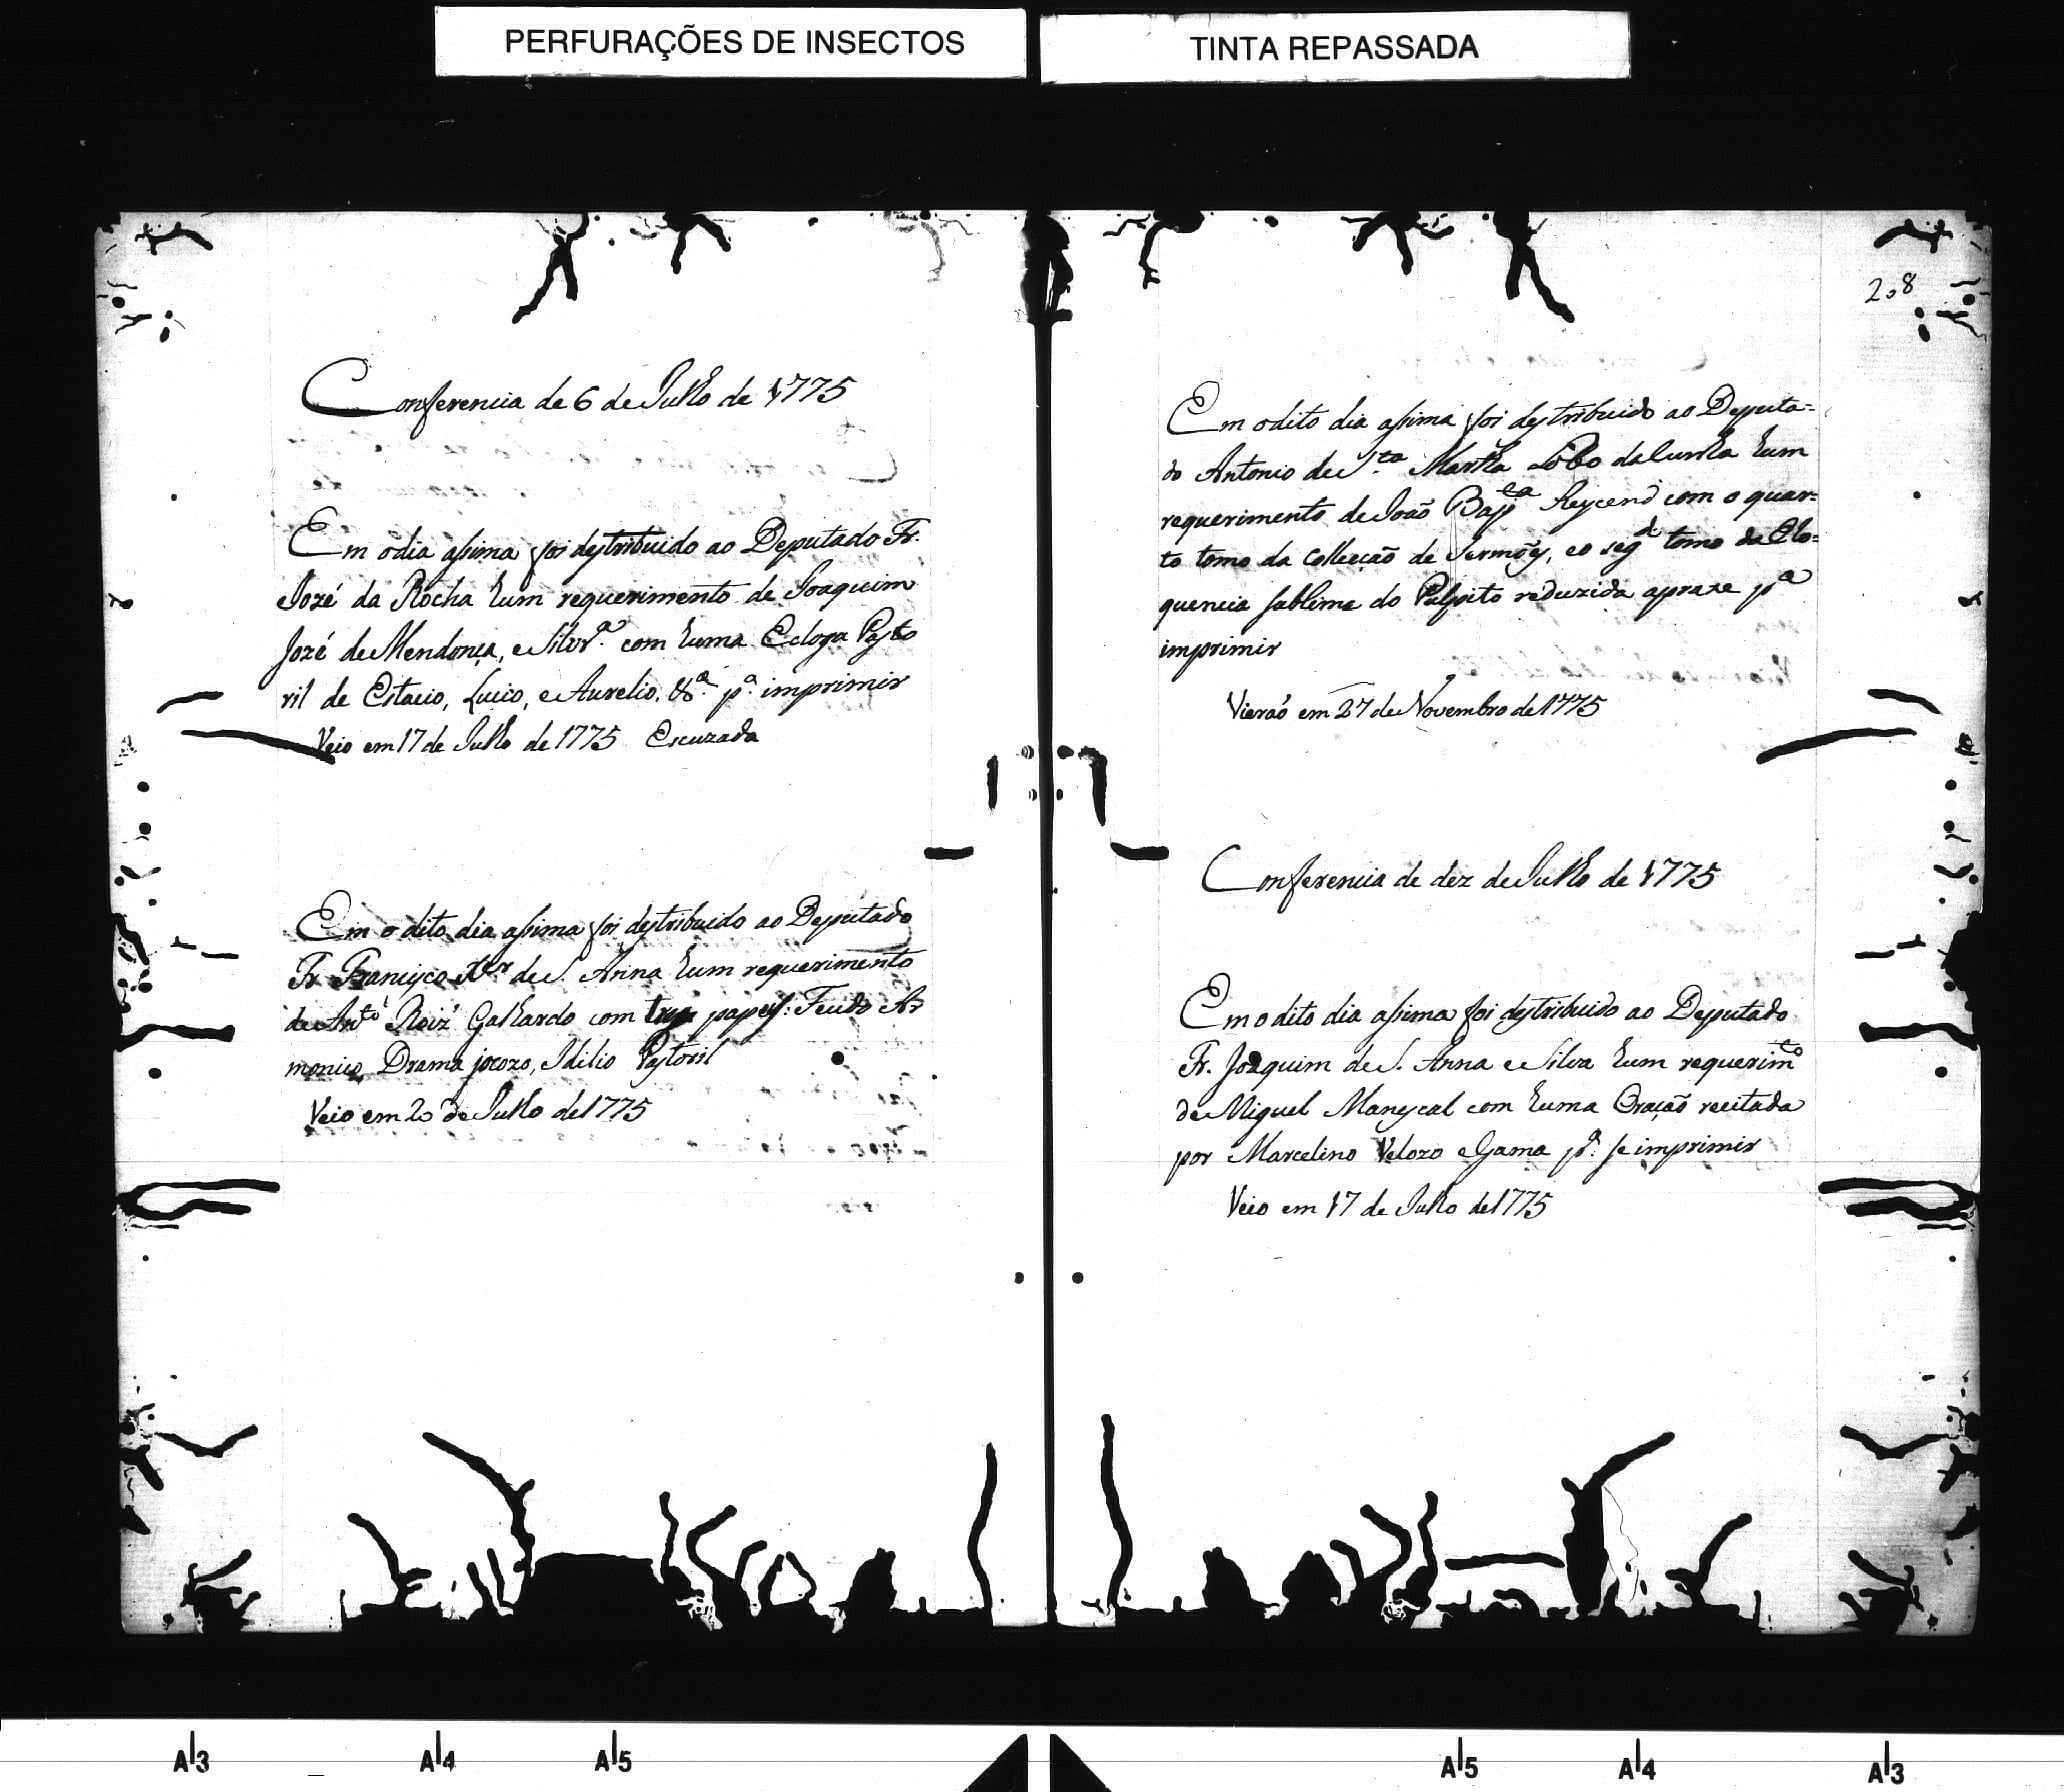 PERFURAÇÕES DE INSECTOS
TINTA REPASSADA
Conferencia de 6 de Julho de 1775
Em o dia asima foi destribuido ao Deputado Fr.
Jozé da Rocha hum requerimento de Joaquim
Jozé de Mendonça, e Silvr.ª com huma Ecloga Pasto
ril de Estacio, Lucio, e Aurelio, &ª. pª. imprimir
Veio em 17 de Julho de 1775 Escuzada
Em o dito dia asima foi destribuido ao Deputado
Fr. Francisco Xer de S. Anna hum requerimento
de Antº Roiz Galhardo com tres papeis: Feudo Ar
monico, Drama jocozo, Idilio Pastoril
Veio em 20 de Julho de 1775
208
Em o dito dia asima foi destribuido ao Deputa=
do Antonio de S.ta Martha Lobo da Cunha hum
requerimento de João Bapta Reycend com o quar=
to tomo da Collecção de Sermões, e o segdo tomo da Elo=
quencia sublime do Pulpito reduzida a praxe pª
imprimir
Vierão em 27 de Novembro de 1775
Conferencia de dez de Julho de 1775
Em o dito dia asima foi destribuido ao Deputado
Fr. Joaquim de S. Anna e Silva hum requerimto
de Miguel Manescal com huma Oração recitada
por Marcelino Velozo e Gama pª. se imprimir
Veio em 17 de Julho de 1775
A3 A4 A5
A5 A4 A3